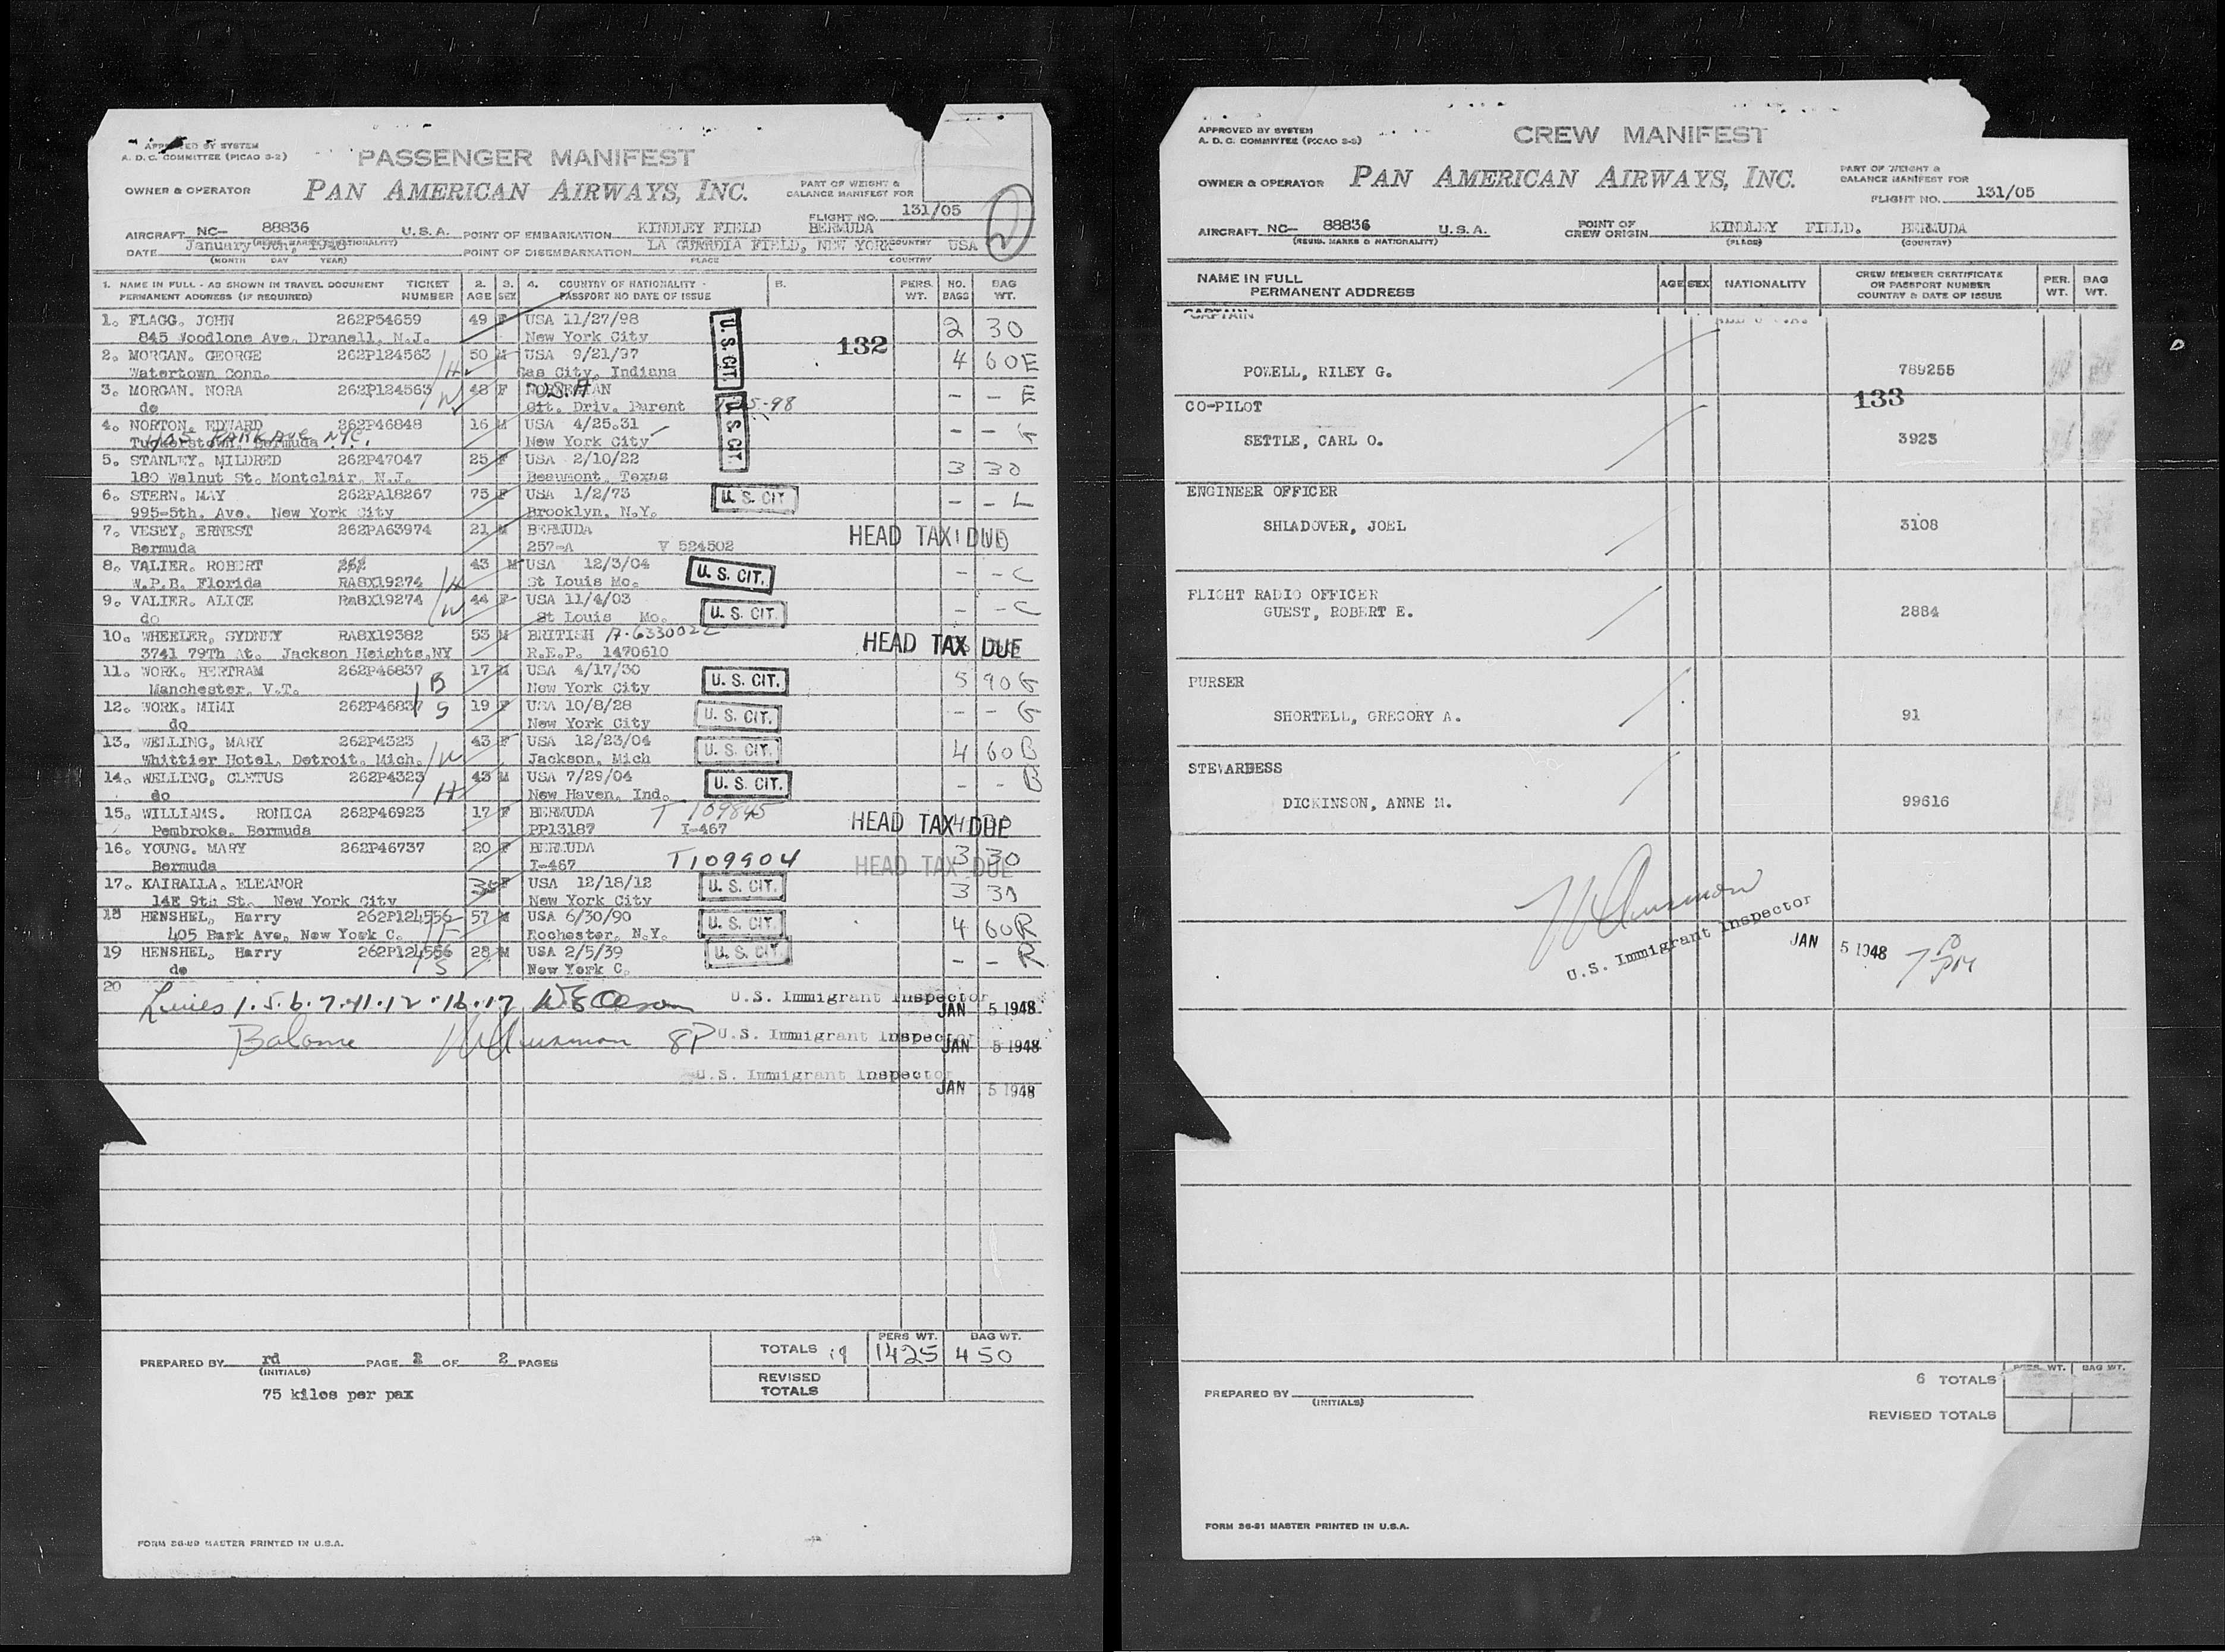 APPROVED BY SYSTEM
A. D. C. COMMITTEE (PICAO 3-2)
PASSENGER MANIFEST
OWNER & OPERATOR PAN AMERICAN AIRWAYS, INC.
PART OF WEIGHT &
BALANCE MANIFEST FOR
FLIGHT NO. 131/05
2
AIRCRAFT NC- 88836 U.S.A. POINT OF EMBARKATION KINDLEY FIELD BERMUDA
DATE January 5th, 1948 POINT OF DISEMBARKATION LA GUARDIA FIELD, NEW YORK COUNTRY USA
(MONTH DAY YEAR) PLACE COUNTRY
1. NAME IN FULL - AS SHOWN IN TRAVEL DOCUMENT TICKET 2. 3. 4. COUNTRY OF NATIONALITY - 5. PERS. NO. BAG
PERMANENT ADDRESS (IF REQUIRED) NUMBER AGE SEX PASSPORT NO DATE OF ISSUE WT. BAGS WT.
1. FLAGG, JOHN 262P54659 49 F USA 11/27/98 U.S. CIT. 2 30
845 Woodlone Ave. Dranell, N.J. New York City
132
2. MORGAN. GEORGE 262P124563 50 M USA 9/21/97 4 60E
Watertown Conn. H Gas City, Indiana
3. MORGAN. NORA 262P124563 48 F USA - - E
do W Cit. Driv. Parent -98 U.S. CIT.
4. NORTON. EDWARD 262P46848 16 M USA 4/25.31 - - G
Tuckerstown, Bermuda 405 PARK AVE N.Y.C. New York City
5. STANLEY. MILDRED 262P47047 25 F USA 2/10/22 3 30
180 Walnut St. Montclair, N.J. Beaumont, Texas
6. STERN. MAY 262PA18267 75 F USA 1/2/73 U. S. CIT - - L
995-5th. Ave. New York City Brooklyn, N.Y.
7. VESEY, ERNEST 262PA63974 21 M BERMUDA HEAD TAX DUE
Bermuda 257-A V 524502
8. VALIER. ROBERT 262 43 M USA 12/3/04 U. S. CIT. - - C
W.P.B. Florida RA8X19274 H St Louis Mo.
9. VALIER. ALICE RA8X19274 44 F USA 11/4/03 U. S. CIT. - - C
do W St Louis Mo.
10. WHEELER, SYDNEY RA8X19382 53 M BRITISH A-6330022 HEAD TAX DUE
3741 79Th At. Jackson Heights,NY R.E.P. 1470610
11. WORK. BERTRAM 262P46837 17 M USA 4/17/30 U. S. CIT. 5 90G
Manchester, V.T. B New York City
12. WORK. MIMI 262P46837 19 F USA 10/8/28 U. S. CIT. - - G
do S New York City
13. WELLING, MARY 262P4323 43 F USA 12/23/04 U. S. CIT. 4 60B
Whittier Hotel, Detroit, Mich. W Jackson, Mich
14. WELLING, CLETUS 262P4323 43 M USA 7/29/04 U. S. CIT. - - B
do H New Haven, Ind.
15. WILLIAMS. RONICA 262P46923 17 F BERMUDA T 109845 HEAD TAX DUE
Pembroke, Bermuda PP13187 I-467
16. YOUNG. MARY 262P46737 20 F BERMUDA T109904 3 30
Bermuda I-467 HEAD TAX DUE
17. KAIRALLA. ELEANOR 35 F USA 12/18/12 U. S. CIT. 3 30
14E 9th St. New York City New York City
18 HENSHEL, Harry 262P124556 57 M USA 6/30/90 U. S. CIT. 4 60R
405 Park Ave, New York C. F Rochester, N.Y.
19 HENSHEL, Harry 262P124556 28 M USA 2/5/39 U. S. CIT. - - R
do S New York C.
20
Lines 1.5.6.7.11.12.16.17 U.S. Immigrant Inspector
JAN 5 1948
Balance 8P U.S. Immigrant Inspector
JAN 5 1948
U.S. Immigrant Inspector
JAN 5 1948
PERS WT. BAG WT.
TOTALS 19 1425 450
REVISED
TOTALS
PREPARED BY rd PAGE 2 OF 2 PAGES
(INITIALS)
75 kilos per pax
FORM 36-80 MASTER PRINTED IN U.S.A.
APPROVED BY SYSTEM
A. D. C. COMMITTEE (PICAO 3-3)
CREW MANIFEST
OWNER & OPERATOR PAN AMERICAN AIRWAYS, INC.
PART OF WEIGHT &
BALANCE MANIFEST FOR
FLIGHT NO. 131/05
AIRCRAFT NC- 88836 U.S.A. POINT OF CREW ORIGIN KINDLEY FIELD. BERMUDA
(REGIS. MARKS & NATIONALITY) (PLACE) (COUNTRY)
NAME IN FULL AGE SEX NATIONALITY CREW MEMBER CERTIFICATE PER. BAG
PERMANENT ADDRESS OR PASSPORT NUMBER WT. WT.
COUNTRY & DATE OF ISSUE
CAPTAIN ALL U.S.A.
POWELL, RILEY G. 789255
133
CO-PILOT
SETTLE, CARL O. 3923
ENGINEER OFFICER
SHLADOVER, JOEL 3108
FLIGHT RADIO OFFICER
GUEST, ROBERT E. 2884
PURSER
SHORTELL, GREGORY A. 91
STEWARDESS
DICKINSON, ANNE M. 99616
U.S. Immigrant Inspector
JAN 5 1948
7 PM
PERS. WT. BAG WT.
6 TOTALS
PREPARED BY
(INITIALS)
REVISED TOTALS
FORM 36-81 MASTER PRINTED IN U.S.A.